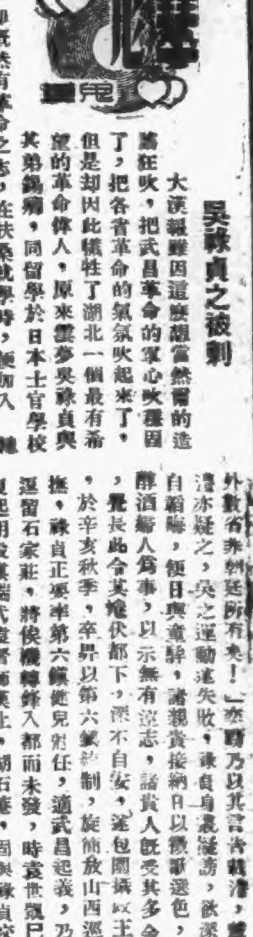 吳祿貞之被刺
大漢報雖因這麽想當然爾的造
謠狂吹,把武昌革命的軍心吹穩固
了,把各省革命的氣氛吹起來了,
但是却因此犧牲了湖北一個最有希
望的革命偉人,原來雲夢吳祿貞與
其弟錫,同留學於日本士官學校
既然有革命之志,在扶桑就學時,便加入
外數省非朝廷所有矣!」奕劻乃以其言告載灃,載
灃亦疑之,吳之運動遂失敗,祿貞身疑謗,欲深
自韜晦,便日與童騃,諸親貴接納日以徵歌選色,
醇酒婦人爲事,以示無有遠志,諸貴人旣受其多金
,覺長此令其雌伏都下,深不自安,遂包圍攝政王
,於辛亥秋季,卒畀以第六鎮統制,旋簡放山西巡
撫,祿貞正要率第六鎮健兒赴任,適武昌起義,乃
逗留石家莊,將俟機轉鋒入都而未發,時袁世凱已